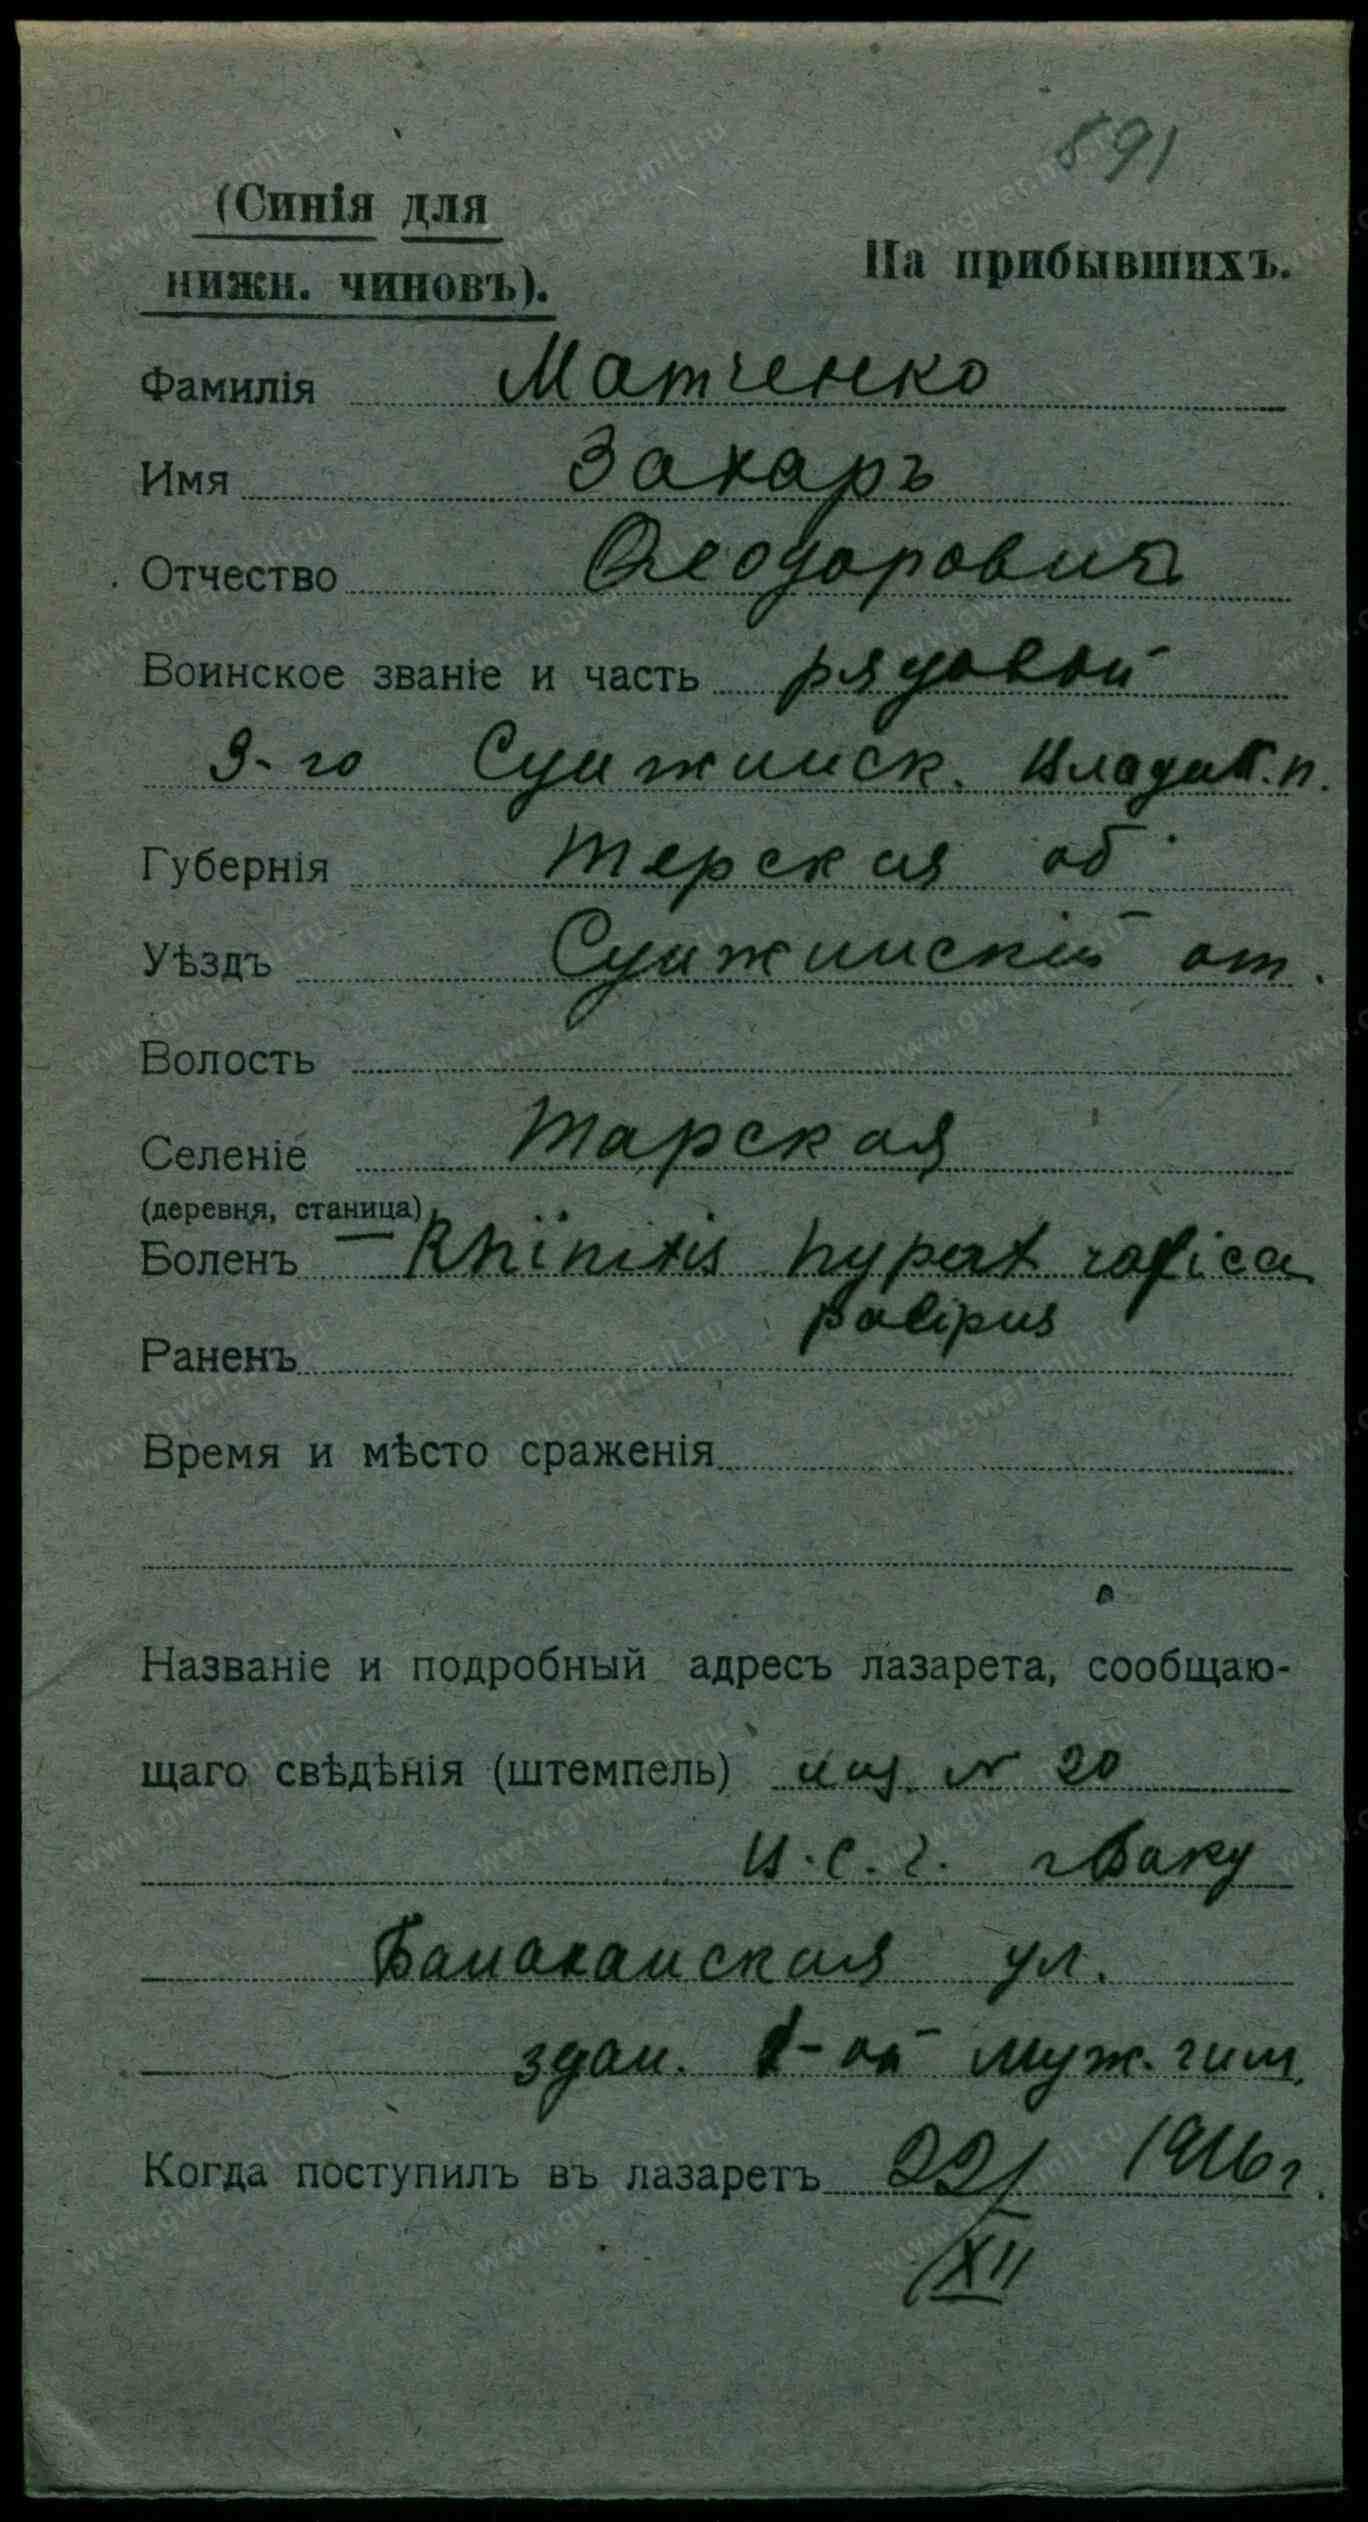 891
(Синія для
нижн. чиновъ).
На прибывшихъ.
Фамилія Матченко
Имя Захаръ
Отчество Ѳеодоровичъ
Воинское званіе и часть рядовой
9-го Сунжинск. Владик. п.
Губернія Терская об.
Уѣздъ Сунжинскій от.
Волость
Селеніе Тарская
(деревня, станица)
Боленъ — Rhinitis hypertrofica
polipus
Раненъ
Время и мѣсто сраженія
Названіе и подробный адресъ лазарета, сообщаю-
щаго свѣдѣнія (штемпель) № 20
в. с. г. г Баку
Балаханская ул.
здан. 1-ой муж. гим.
Когда поступилъ въ лазаретъ 22/XII 1916 г.